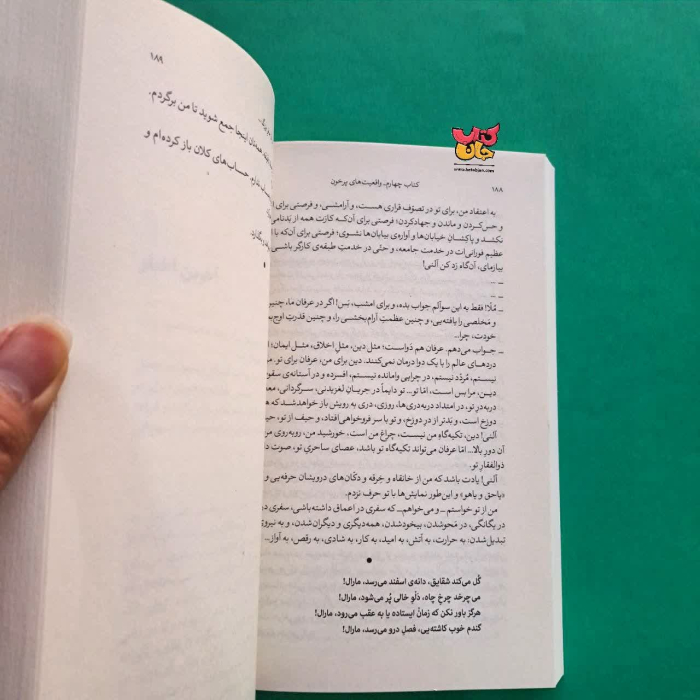 کتاب جان
www.ketabjan.com
۱۸۸
کتاب چهارم_ واقعیت‌های پرخون
به اعتقاد من، برای تو در تصوّف قراری هست، و آرامشی، و فرصتی برای
و حس‌کردن و ماندن و جهادکردن؛ فرصتی برای آن‌که کارت همه از بدنامی
نکشد و پاکِشان خیابان‌ها و آواره‌ی بیابان‌ها نشوی؛ فرصتی برای آن‌که با
عظیم فورانی‌ات در خدمت جامعه، و حتّی در خدمتِ طبقه‌ی کارگر باشی
بیازمای، آن‌گاه رَد کن آلنی!
_ ...
_ ...
_ مُلّا! فقط به این سوآلم جواب بده، و برای امشب، بَس! اگر در عرفان ما، چنین
و مَخلصی را یافته‌یی، و چنین عظمتِ آرام‌بخشی را، و چنین قدرتِ اوج
خودت، چرا...
_ جواب می‌دهم. عرفان هم دَواست؛ مثل دین، مثلِ اخلاق، مثـل ایمان؛ ا
دردهای عالم را با یک دوا درمان نمی‌کنند. دین برای من، عرفان برای تو. مـ
نیستم، مُردّد نیستم، در چرایی وامانده نیستم، افسرده و در آستانه‌ی سقو
دیـن، مرا بس است، امّا تو... تو دایماً در جریانِ لغزیدنی، سـرگردانی، معـ
دربه‌درِ تو، در امتداد دربه‌دری‌ها، روزی، دری به رویش باز خواهدشد که
دوزخ است، و بَدتر از درِ دوزخ، و تو با سر فروخواهی‌افتاد، و حیف از تو، حیـ
آلنی! دین، تکیه‌گاهِ من نیست، چراغِ من است، خورشید من، روبه‌روی مـ
آن دورِ بالا... امّا عرفان می‌تواند تکیه‌گاه تو باشد، عصای ساحریِ تو، صوت د
ذوالفقارِ تو.
آلنی! یادت باشد که من از خانقاه و خِرقه و دکّان‌های درویشان حرفه‌یی و
«یاحق و یاهو» و این‌طور نمایش‌ها با تو حرف نزدم.
من از تو خواستم _ و می‌خواهم_ که سفری در اعماق داشته‌باشی، سفری د
در یگانگی، در مَحوشدن، بیخودشدن، همه‌دیگری و دیگران‌شدن، و به نیروی
تبدیل‌شدن: به حرارت، به آتش، به امید، به کار، به شادی، به رقص، به آواز...
•
گُل می‌کند شقایق، دانه‌ی اسفند می‌رسد، مارال!
می‌چرخد چرخِ چاه، دَلوِ خالی پُر می‌شود، مارال!
هرگز باور نکن که زمانْ ایستاده یا به عقب می‌رود، مارال!
گندم خوب کاشته‌یی، فصلِ درو می‌رسد، مارال!
۱۸۹
اینجا جمع شوید تا من برگردم.
حساب‌های کلان باز کرده‌ام و